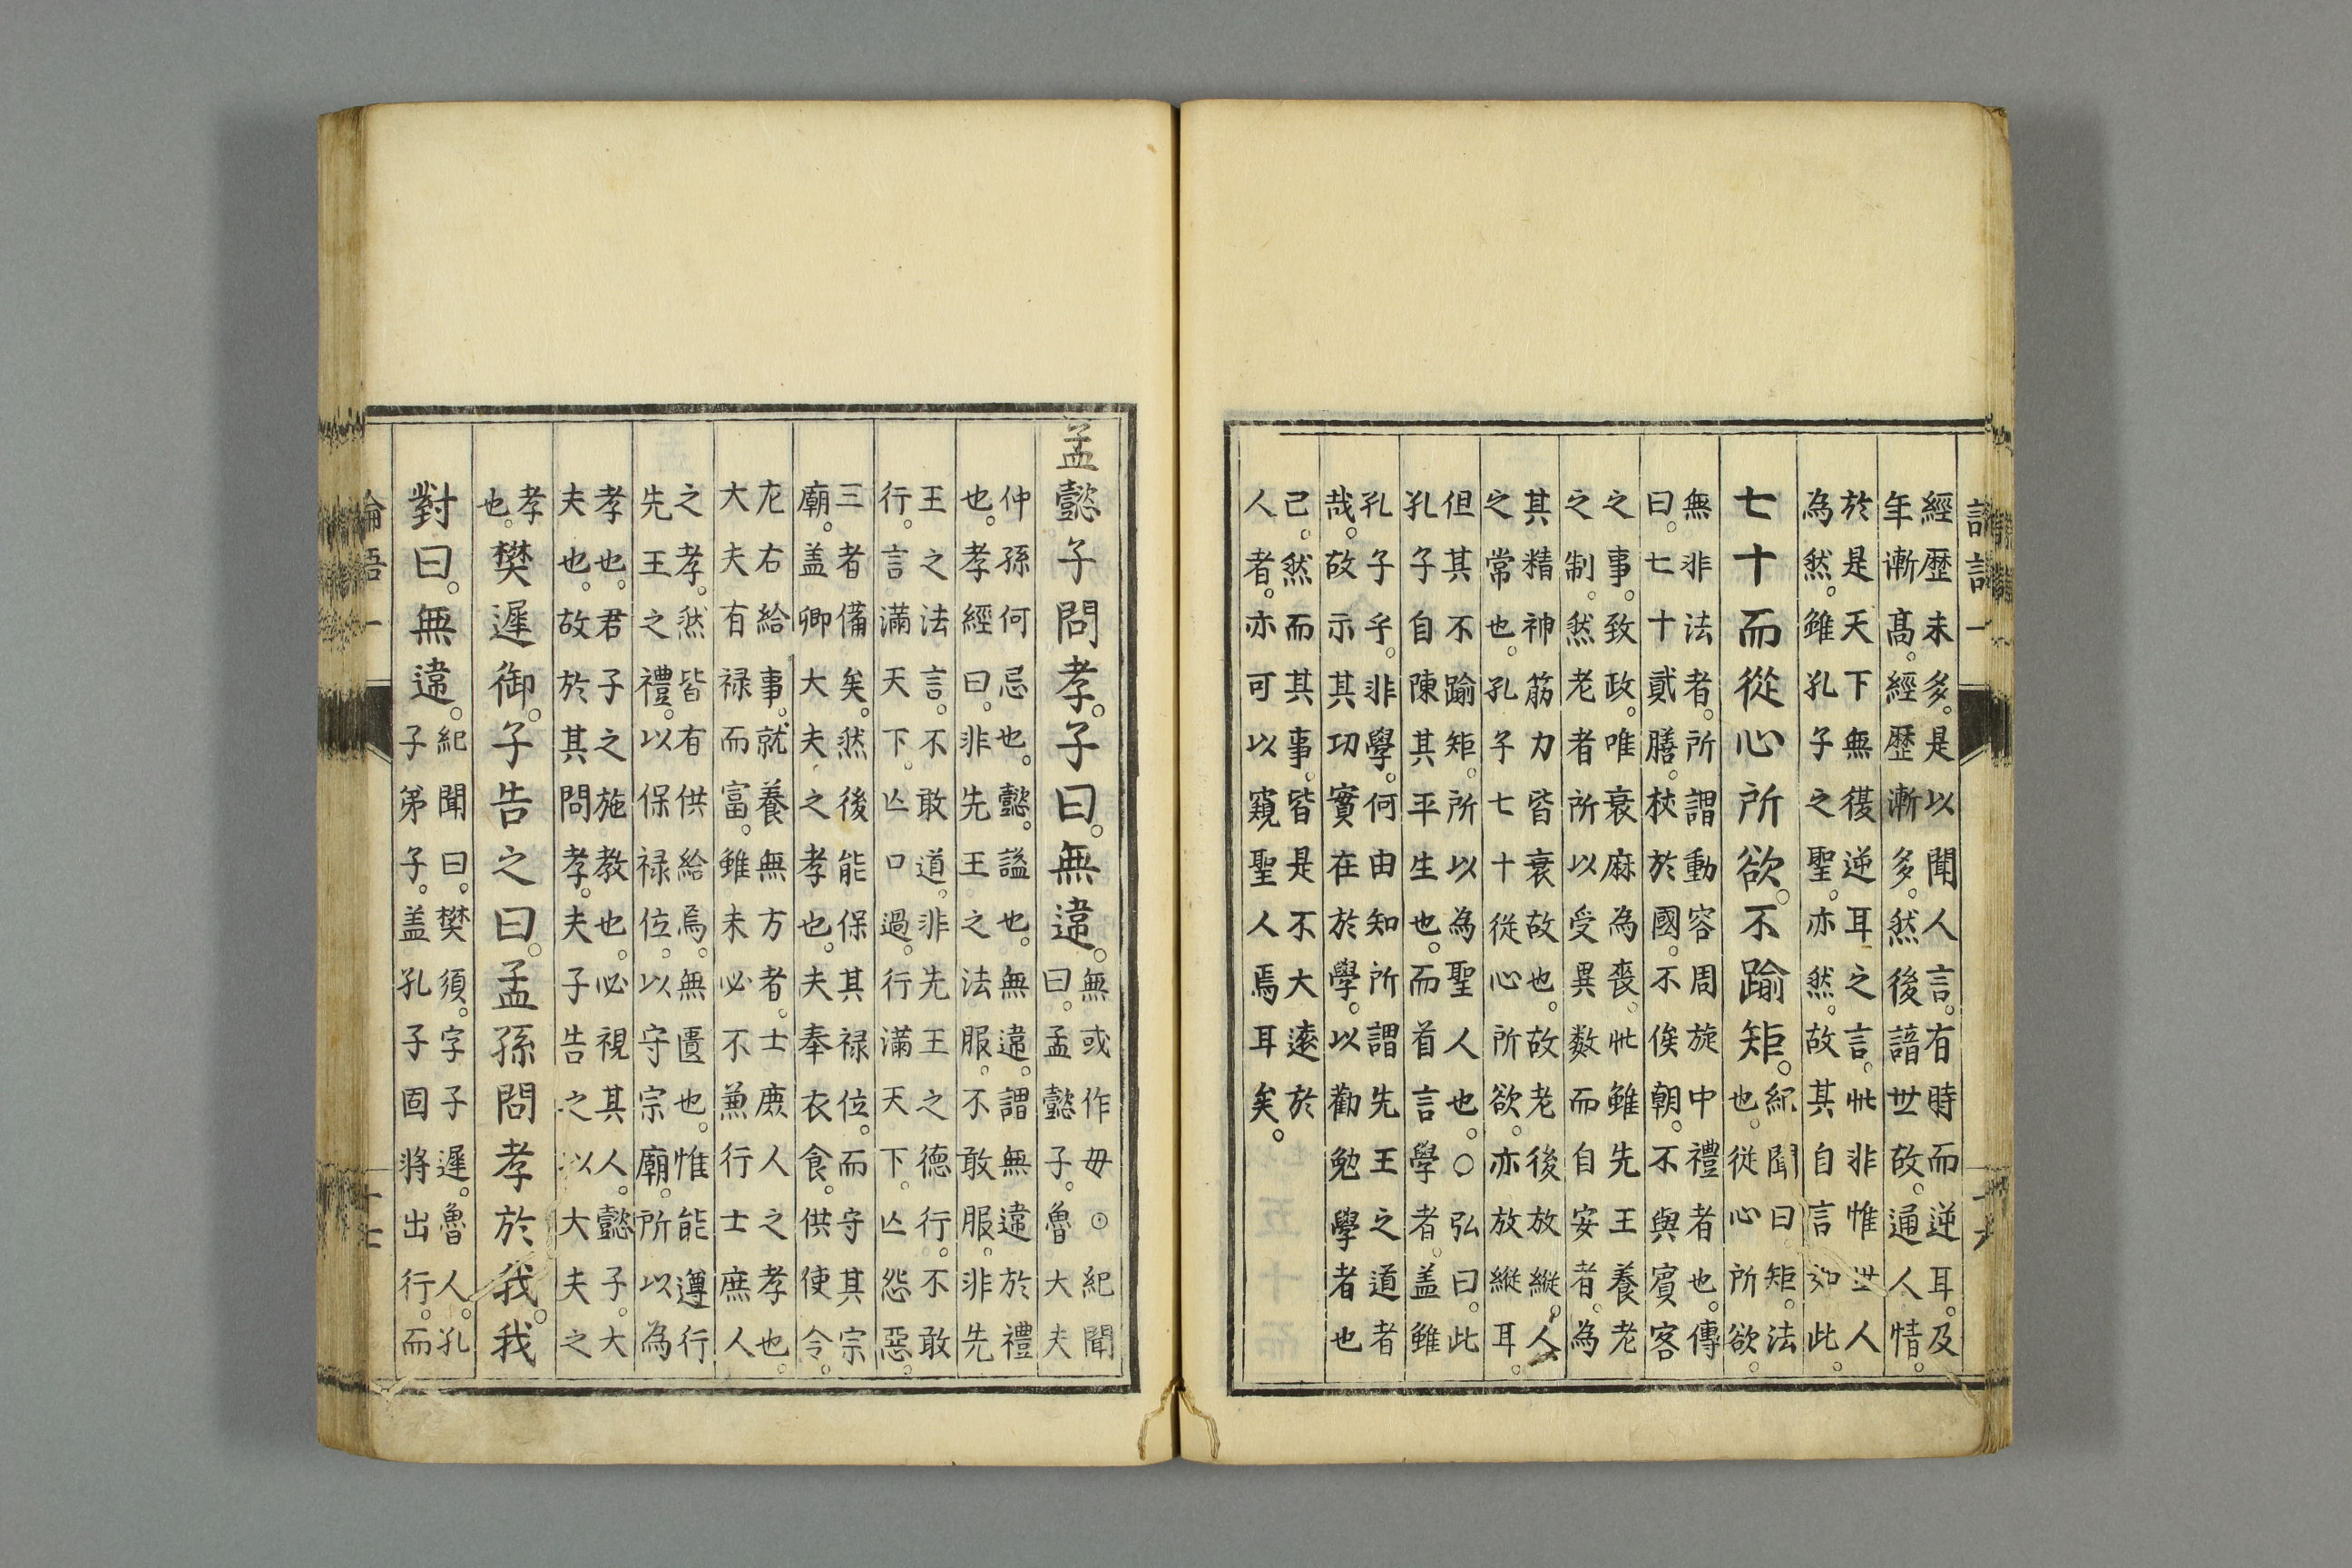 經歷未多。是以聞人言。有時而逆耳。及
年漸高。經歷漸多。然後諳世故。通人情。
於是天下無復逆耳之言。此非惟世人
為然。雖孔子之聖。亦然。故其自言如此。
七十而從心所欲。不踰矩。
紀聞曰。矩。法
也。從心所欲。
無非法者。所謂動容周旋中禮者也。傳
曰。七十貳膳。杖於國。不俟朝。不與賓客
之事。致政。唯衰麻為喪。此雖先王養老
之制。然老者所以受異數而自安者。為
其精神筋力皆衰故也。故老後放縱。人
之常也。孔子七十從心所欲。亦放縱耳。
但其不踰矩。所以為聖人也。○弘曰。此
孔子自陳其平生也。而首言學者。盖雖
孔子乎。非學。何由知所謂先王之道者
哉。故示其功實在於學。以勸勉學者也
已。然而其事。皆是不大遠於
人者。亦可以窺聖人焉耳矣。
孟懿子問孝。子曰。無違。
無或作毋⊙紀聞
曰。孟懿子。魯大夫
仲孫何忌也。懿。謚也。無違。謂無違於禮
也。孝經曰。非先王之法服。不敢服。非先
王之法言。不敢道。非先王之德行。不敢
行。言滿天下。亾口過。行滿天下。亾怨惡。
三者備矣。然後能保其禄位。而守其宗
廟。盖卿大夫之孝也。夫奉衣食。供使令。
左右給事。就養無方者。士庶人之孝也。
大夫有禄而富。雖未必不兼行士庶人
之孝。然皆有供給焉。無匱也。惟能遵行
先王之禮。以保禄位。以守宗廟。所以為
孝也。君子之施教也。必視其人。懿子。大
夫也。故於其問孝。夫子告之以大夫之
孝
也。
樊遲御。子告之曰。孟孫問孝於我。我
對曰。無違。
紀聞曰。樊須。字子遲。魯人。孔
子弟子。盖孔子固將出行。而